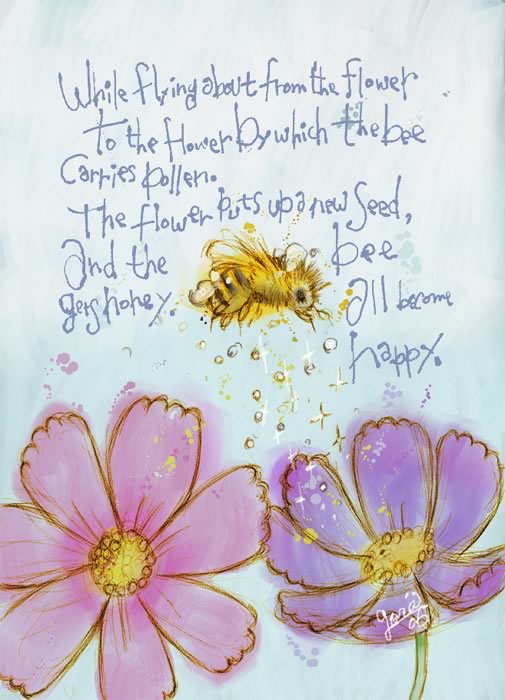 While flying about from the flower
to the flower by which the bee
Carries pollen.
The flower puts up a new Seed,
and the bee
gets honey. all become
happy.